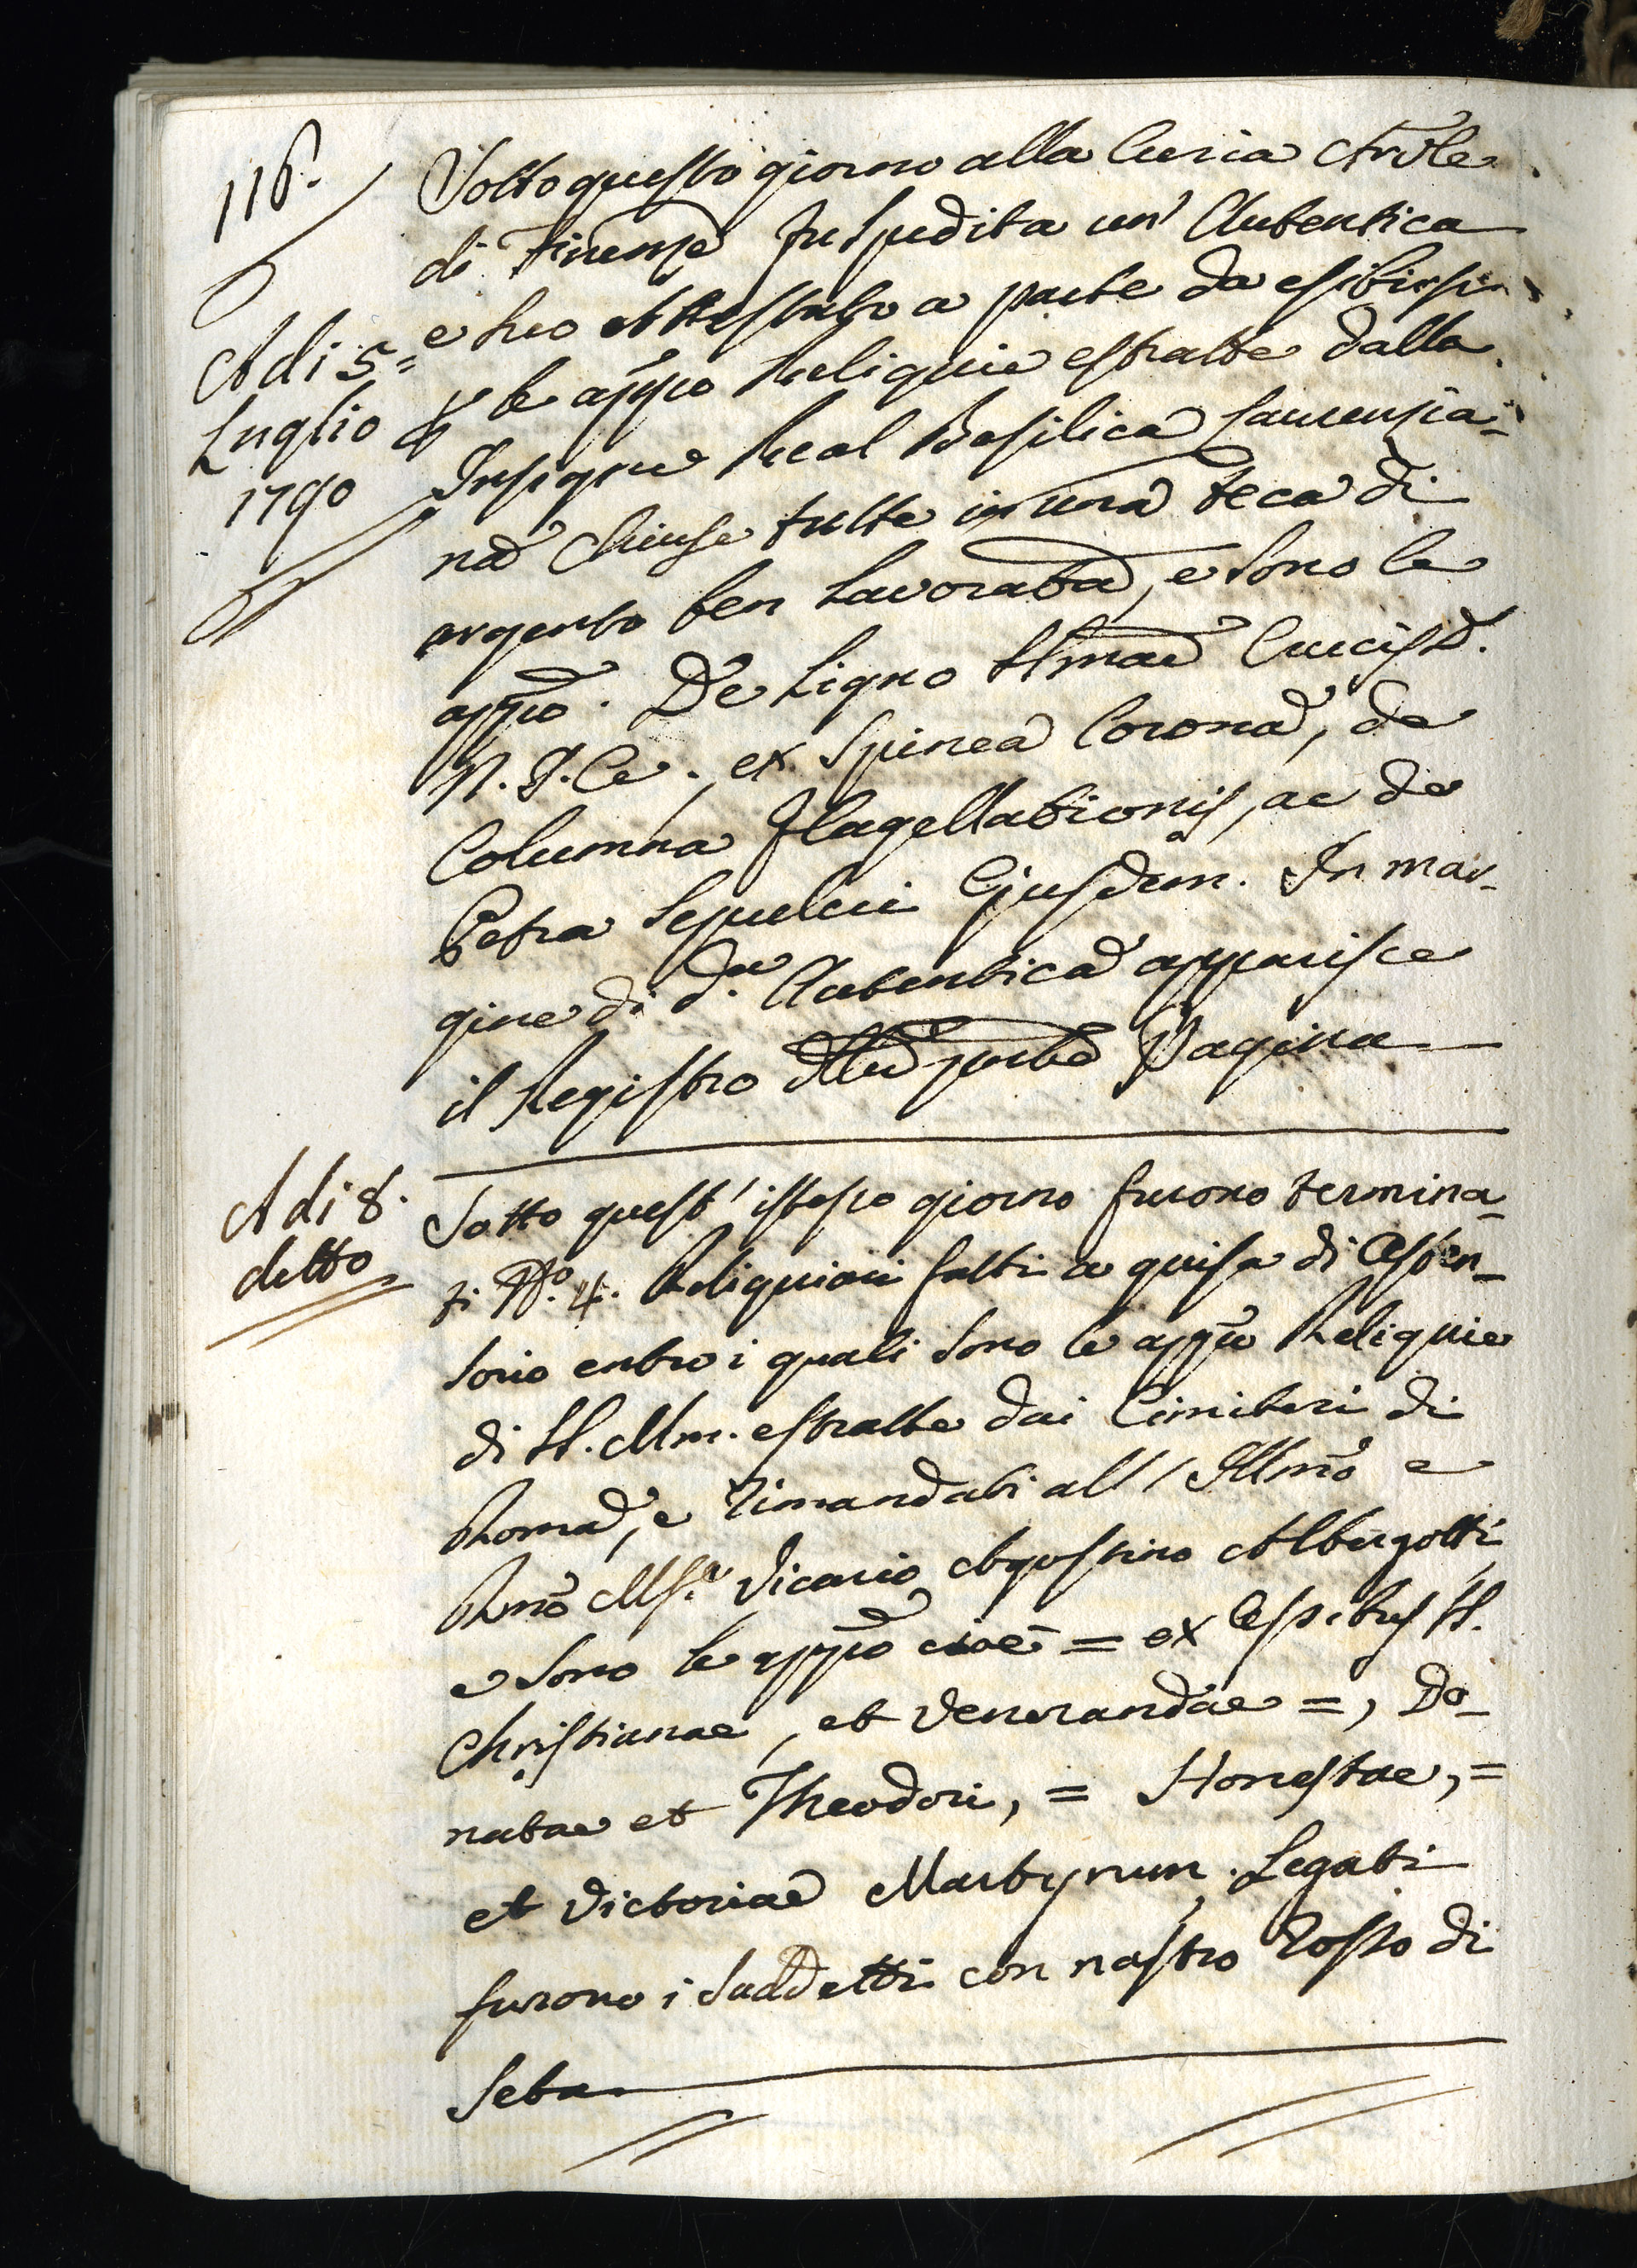 116.
Adi 5
Luglio
1790
Sotto questo giorno alla Curia Arvle
di Firenze fu spedita un' Autentica
e suo Attestato a parte da esibirsi
p le appio Reliquie estratte dalla
Insigne Real Basilica Laurenzia-
na Chiuse tutte in una teca di
argento ben lavorata, e sono le
appio. De Ligno SSmae Crucis D.
N. J. C., ex Spinea Corona, de
Columna Flagellationis, ac de
Petra Sepulcri Ejusdem. In mar-
gine di d.a Autentica apparisce
il Registro della pnte Pagina
Adi 8.
detto
Sotto quest' istesso giorno furono termina-
ti No. 4. Reliquiari fatti a guisa di Osten-
sorio entro i quali sono le appio Reliquie
di SS. Mm. estratte dai Cimiteri di
Roma, e rimandati all' Illmo e
Rmo Msr. Vicario Agostino Albergotti
e sono le appio cioè = ex Ossibus SS.
Christianae, et Venerandae =, Do-
natae et Theodori, = Honestae, =
et Victoriae Martyrum. Legati
furono i suddetti con nastro rosso di
Seta